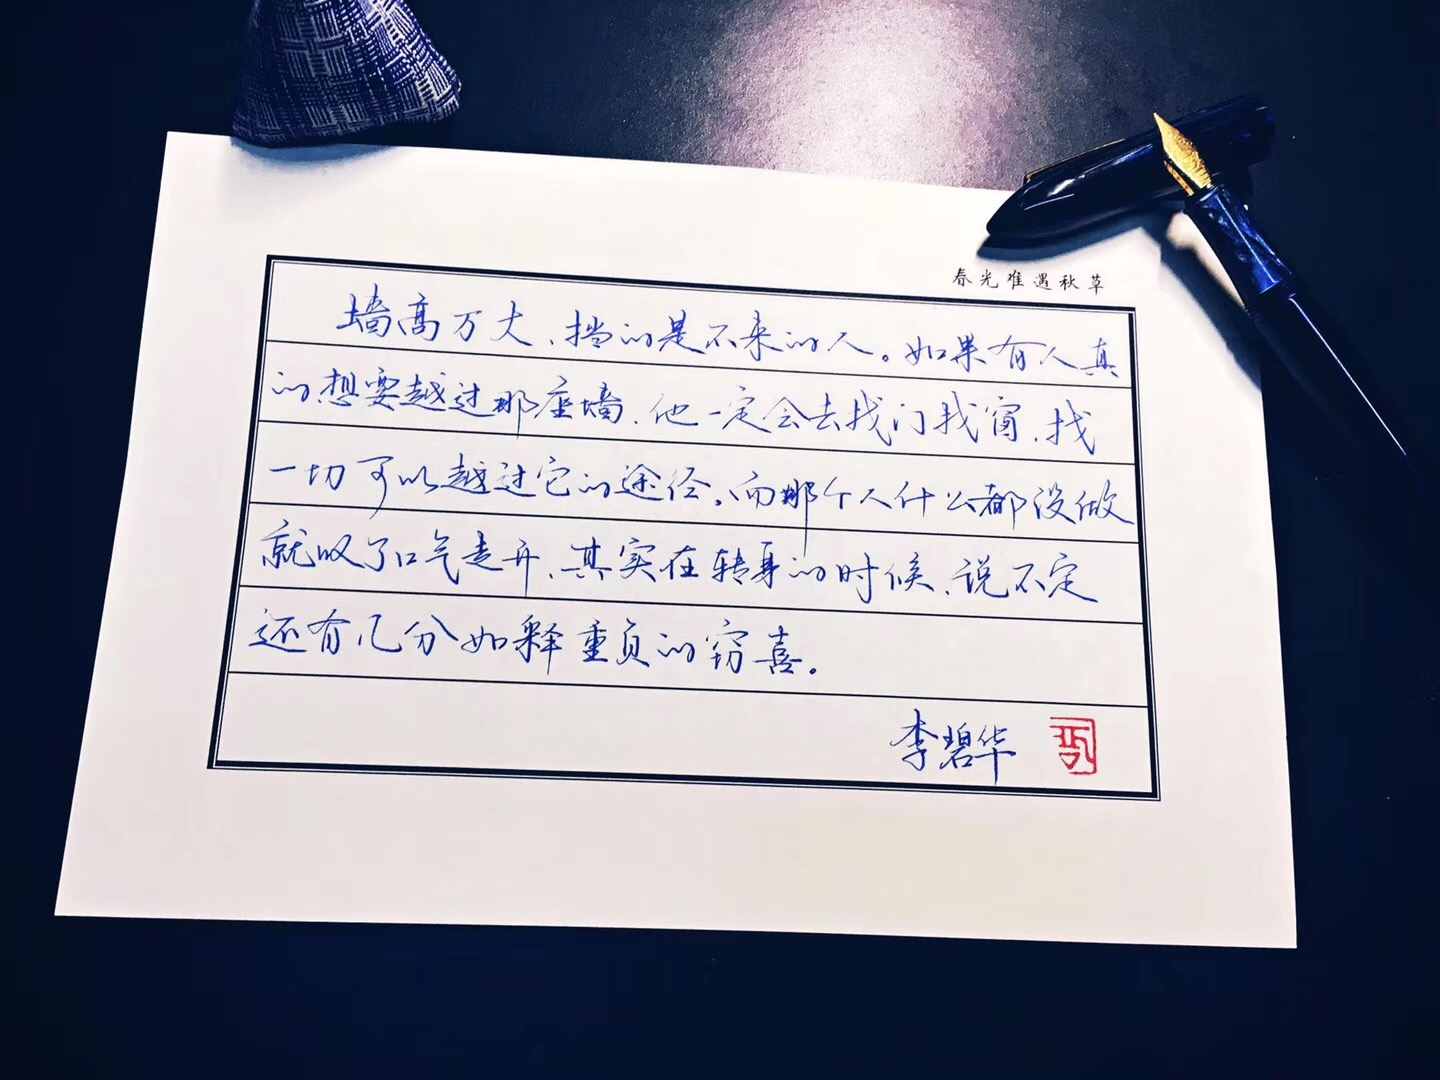 春光难遇秋草
墙高万丈、挡的是不来的人。如果有人真
的想要越过那座墙、他一定会去找门找窗、找
一切可以越过它的途径。而那个人什么都没做
就叹了口气走开、其实在转身的时候、说不定
还有几分如释重负的窃喜。
李碧华